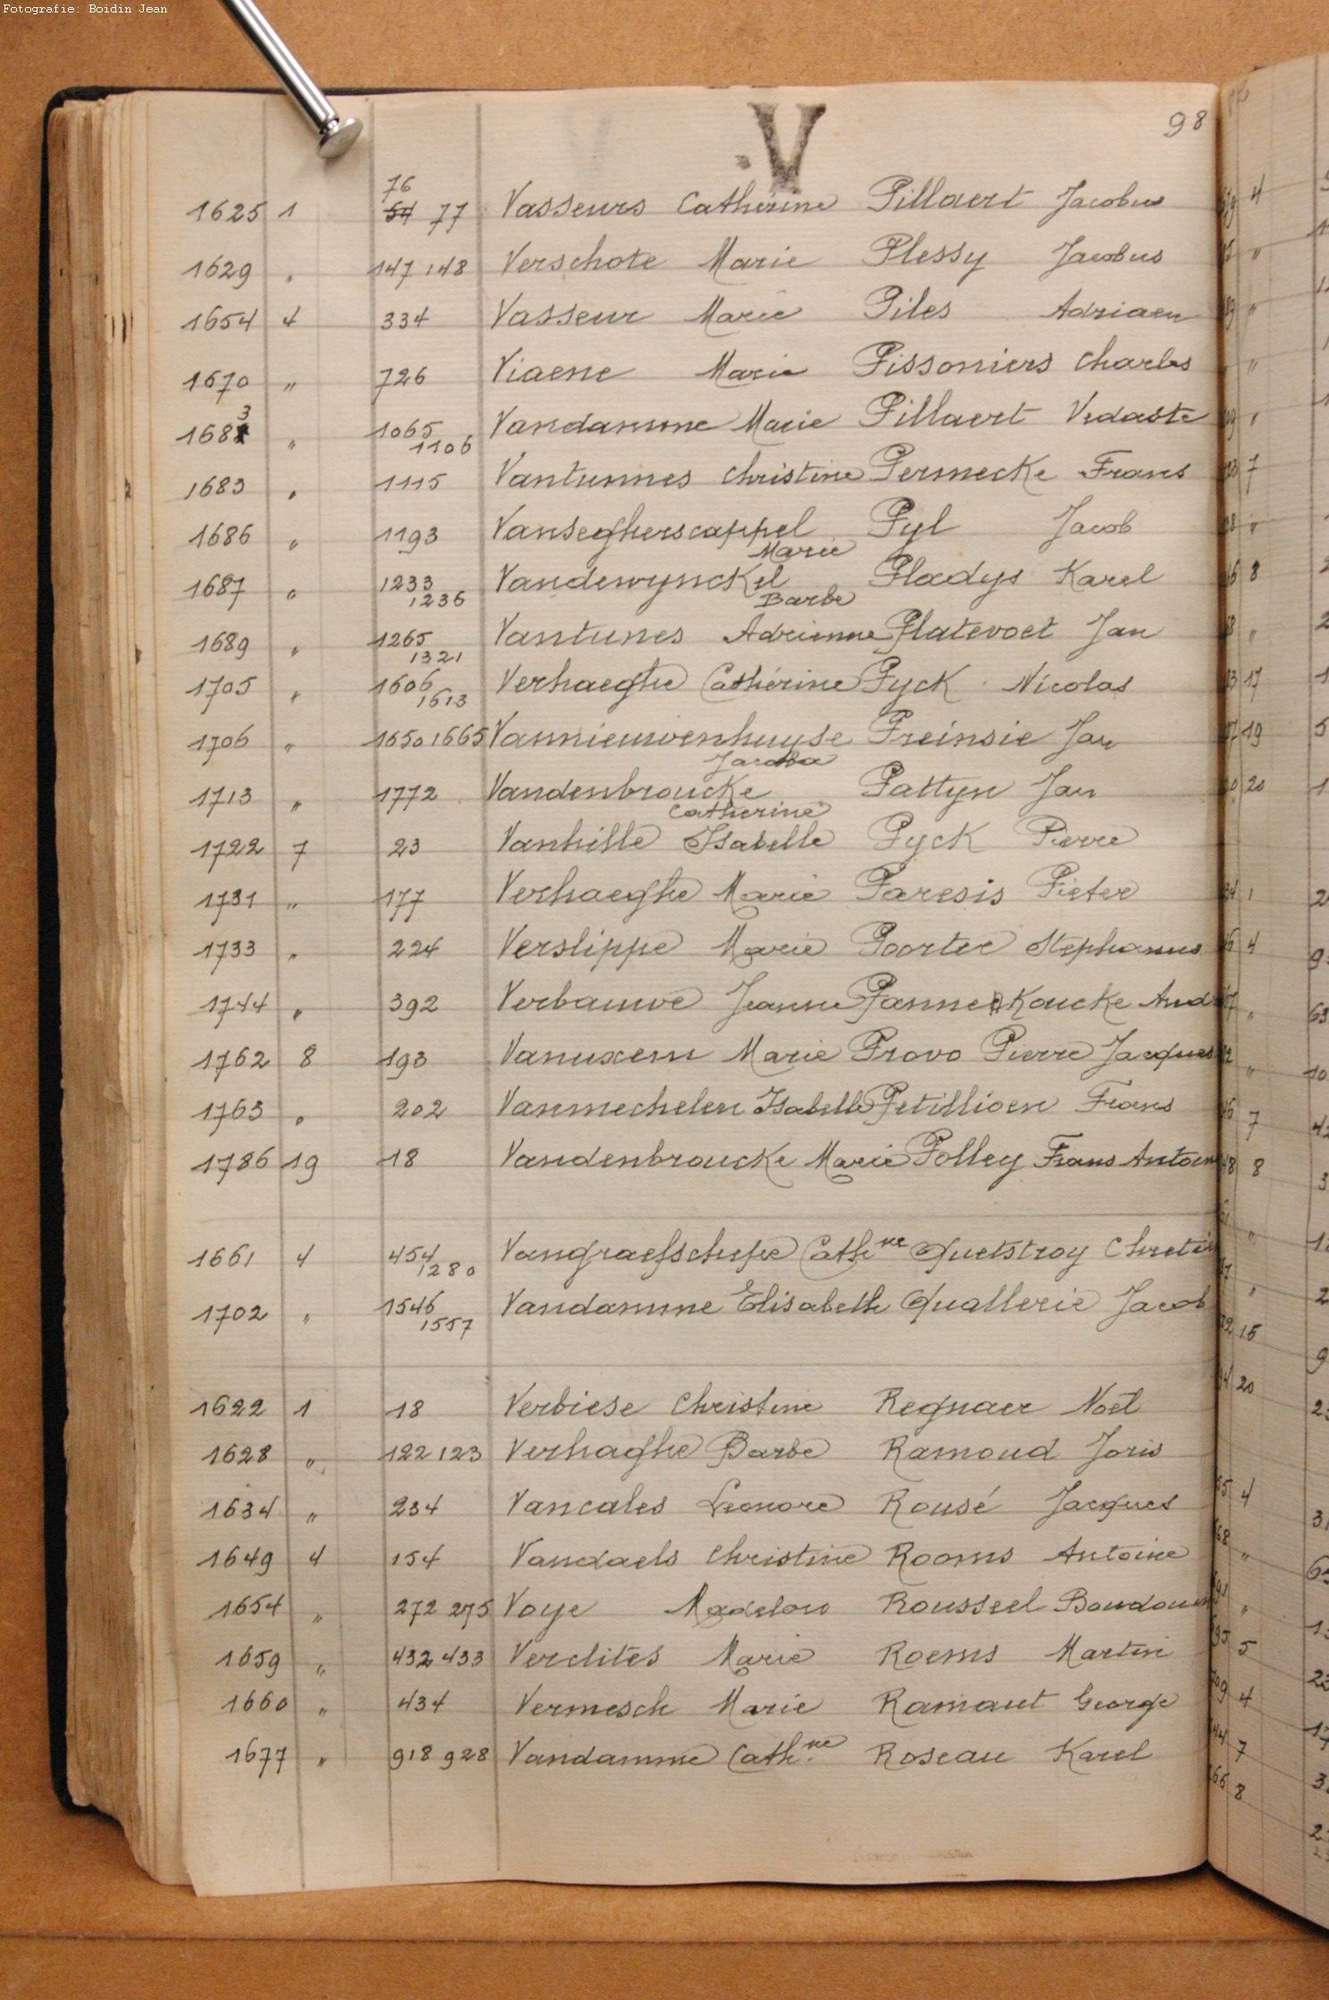 Fotografie: Boidin Jean
V
98
76
1625 1 54 77 Vasseurs Cathérine Pillaert Jacobus
1629 " 147 148 Verschote Marie Plessy Jacobus
1654 4 334 Vasseur Marie Piles Adriaen
1670 " 726 Viaene Marie Pissoniers Charles
1683 " 1065 1106 Vandamme Marie Pillaert Vedaste
1683 " 1115 Vantunnes Christine Permecke Frans
1686 " 1193 Vansegherscappel Marie Pyl Jacob
1687 " 1233 1236 Vandewynckel Barbe Pladys Karel
1689 " 1265 1321 Vantunes Adrienne Platevoet Jan
1705 " 1606 1613 Verhaeghe Cathérine Pyck Nicolas
1706 " 1650 1665 Vannieuwenhuyse Jacoba Preinsie Jan
1713 " 1772 Vandenbroucke Catherine Pattyn Jan
1722 7 23 Vanhille Isabelle Pyck Pierre
1731 " 177 Verhaeghe Marie Paresis Pieter
1733 " 224 Verslippe Marie Poorter Stephanus
1744 " 392 Verbauwe Jeanne Pannekoucke And
1762 8 193 Vanuxem Marie Provo Pierre Jacques
1763 " 202 Vanmechelen Isabelle Petillioen Frans
1786 19 18 Vandenbroucke Marie Polley Frans Antoin
1661 4 454 1280 Vangraefschepe Cathne Quetstroy Chretie
1702 " 1546 1557 Vandamme Elisabeth Quallerie Jacob
1622 1 18 Verbiese Christine Regnaer Noël
1628 " 122 123 Verhaghe Barbe Ramoud Joris
1634 " 234 Vancales Leonore Rousé Jacques
1649 4 154 Vandaels Christine Rooms Antoine
1654 " 272 275 Voye Madelon Roussel Boudouin
1659 " 432 433 Verclités Marie Roems Martin
1660 " 434 Vermesch Marie Ramaut George
1677 " 918 928 Vandamme Cathne Roseau Karel